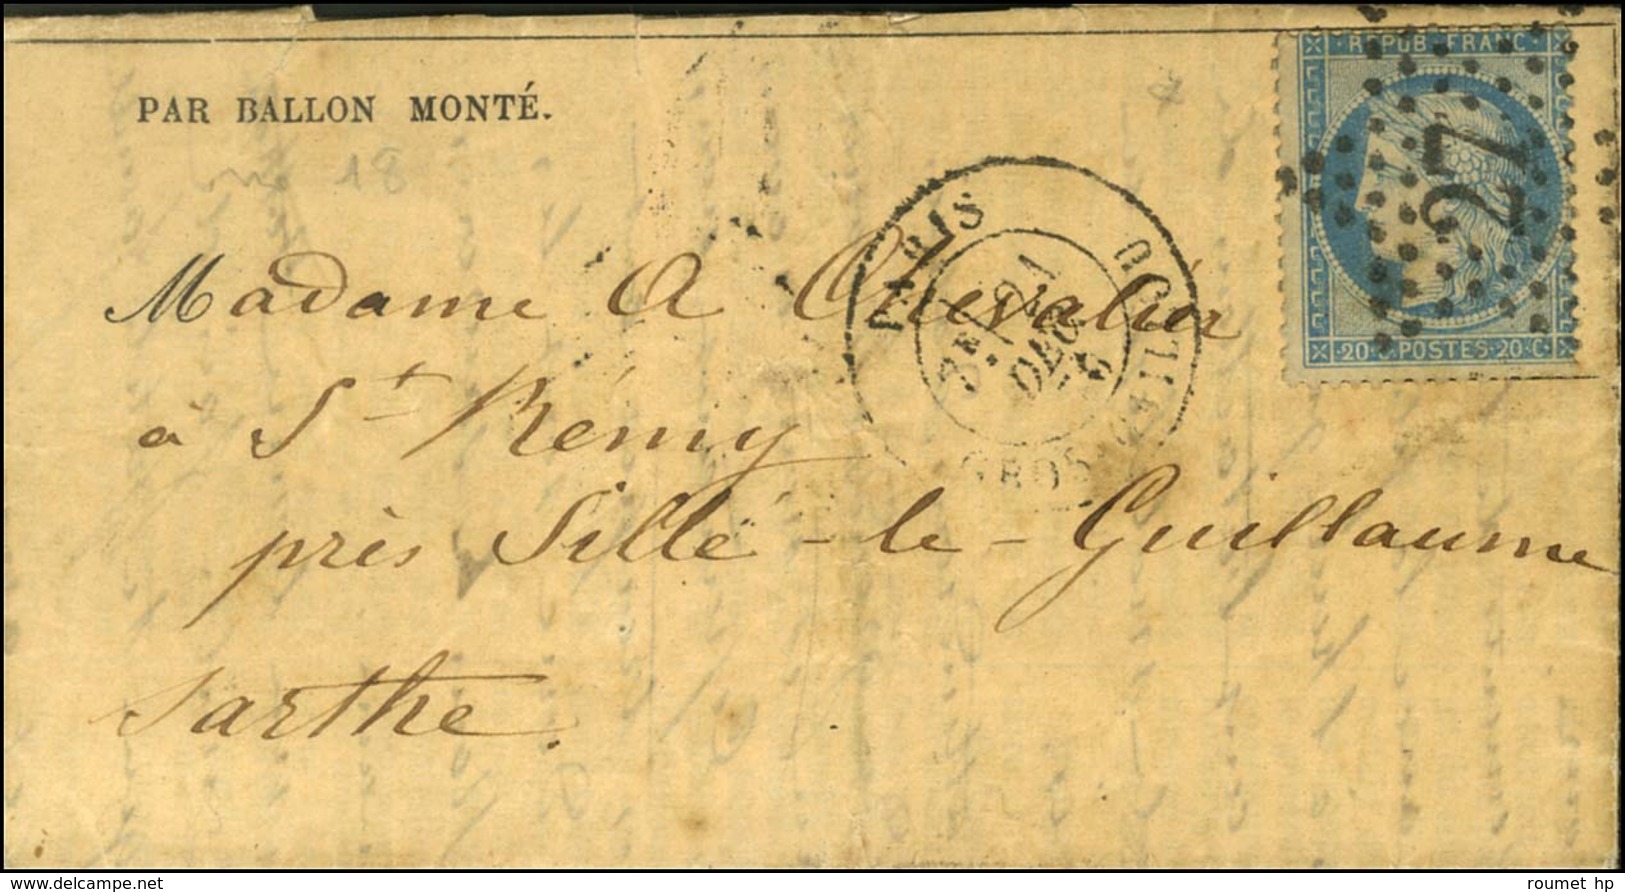 PAR BALLON MONTÉ.
18
REPUB FRANC
27
20 C POSTES 20 C
PARIS
3E
21
DEC
GROS
Madame A Chevalier
à St Rémy
près Sillé-le-Guillaume
Sarthe.
roumet hp